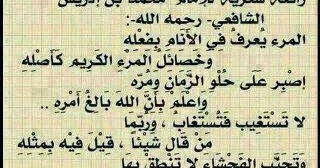 رائعة شعرية للإمام محمد بن إدريس
الشافعي- رحمه الله-:
المرء يُعرفُ في الأَنَامِ بِفعْلِهِ
وخَصَائلُ المَرْءِ الكَريم كَأَصْلِهِ
إصْبِر عَلَى حُلْوِ الزَّمَانِ وَمُرِّه
وَاعْلَم بِأَنَّ اللهَ بَالغُ أَمْرِهِ ..
لا تَسْتَغِيب فَتُسْتَغابُ ، وَرُبّمَا
مَن قال شَيْئًا ، قيْلَ فيْه بِمِثْلِهِ
وَتَجَنَّبِ الفَحْشَاءَ لا تَنْطِقْ بِهَا